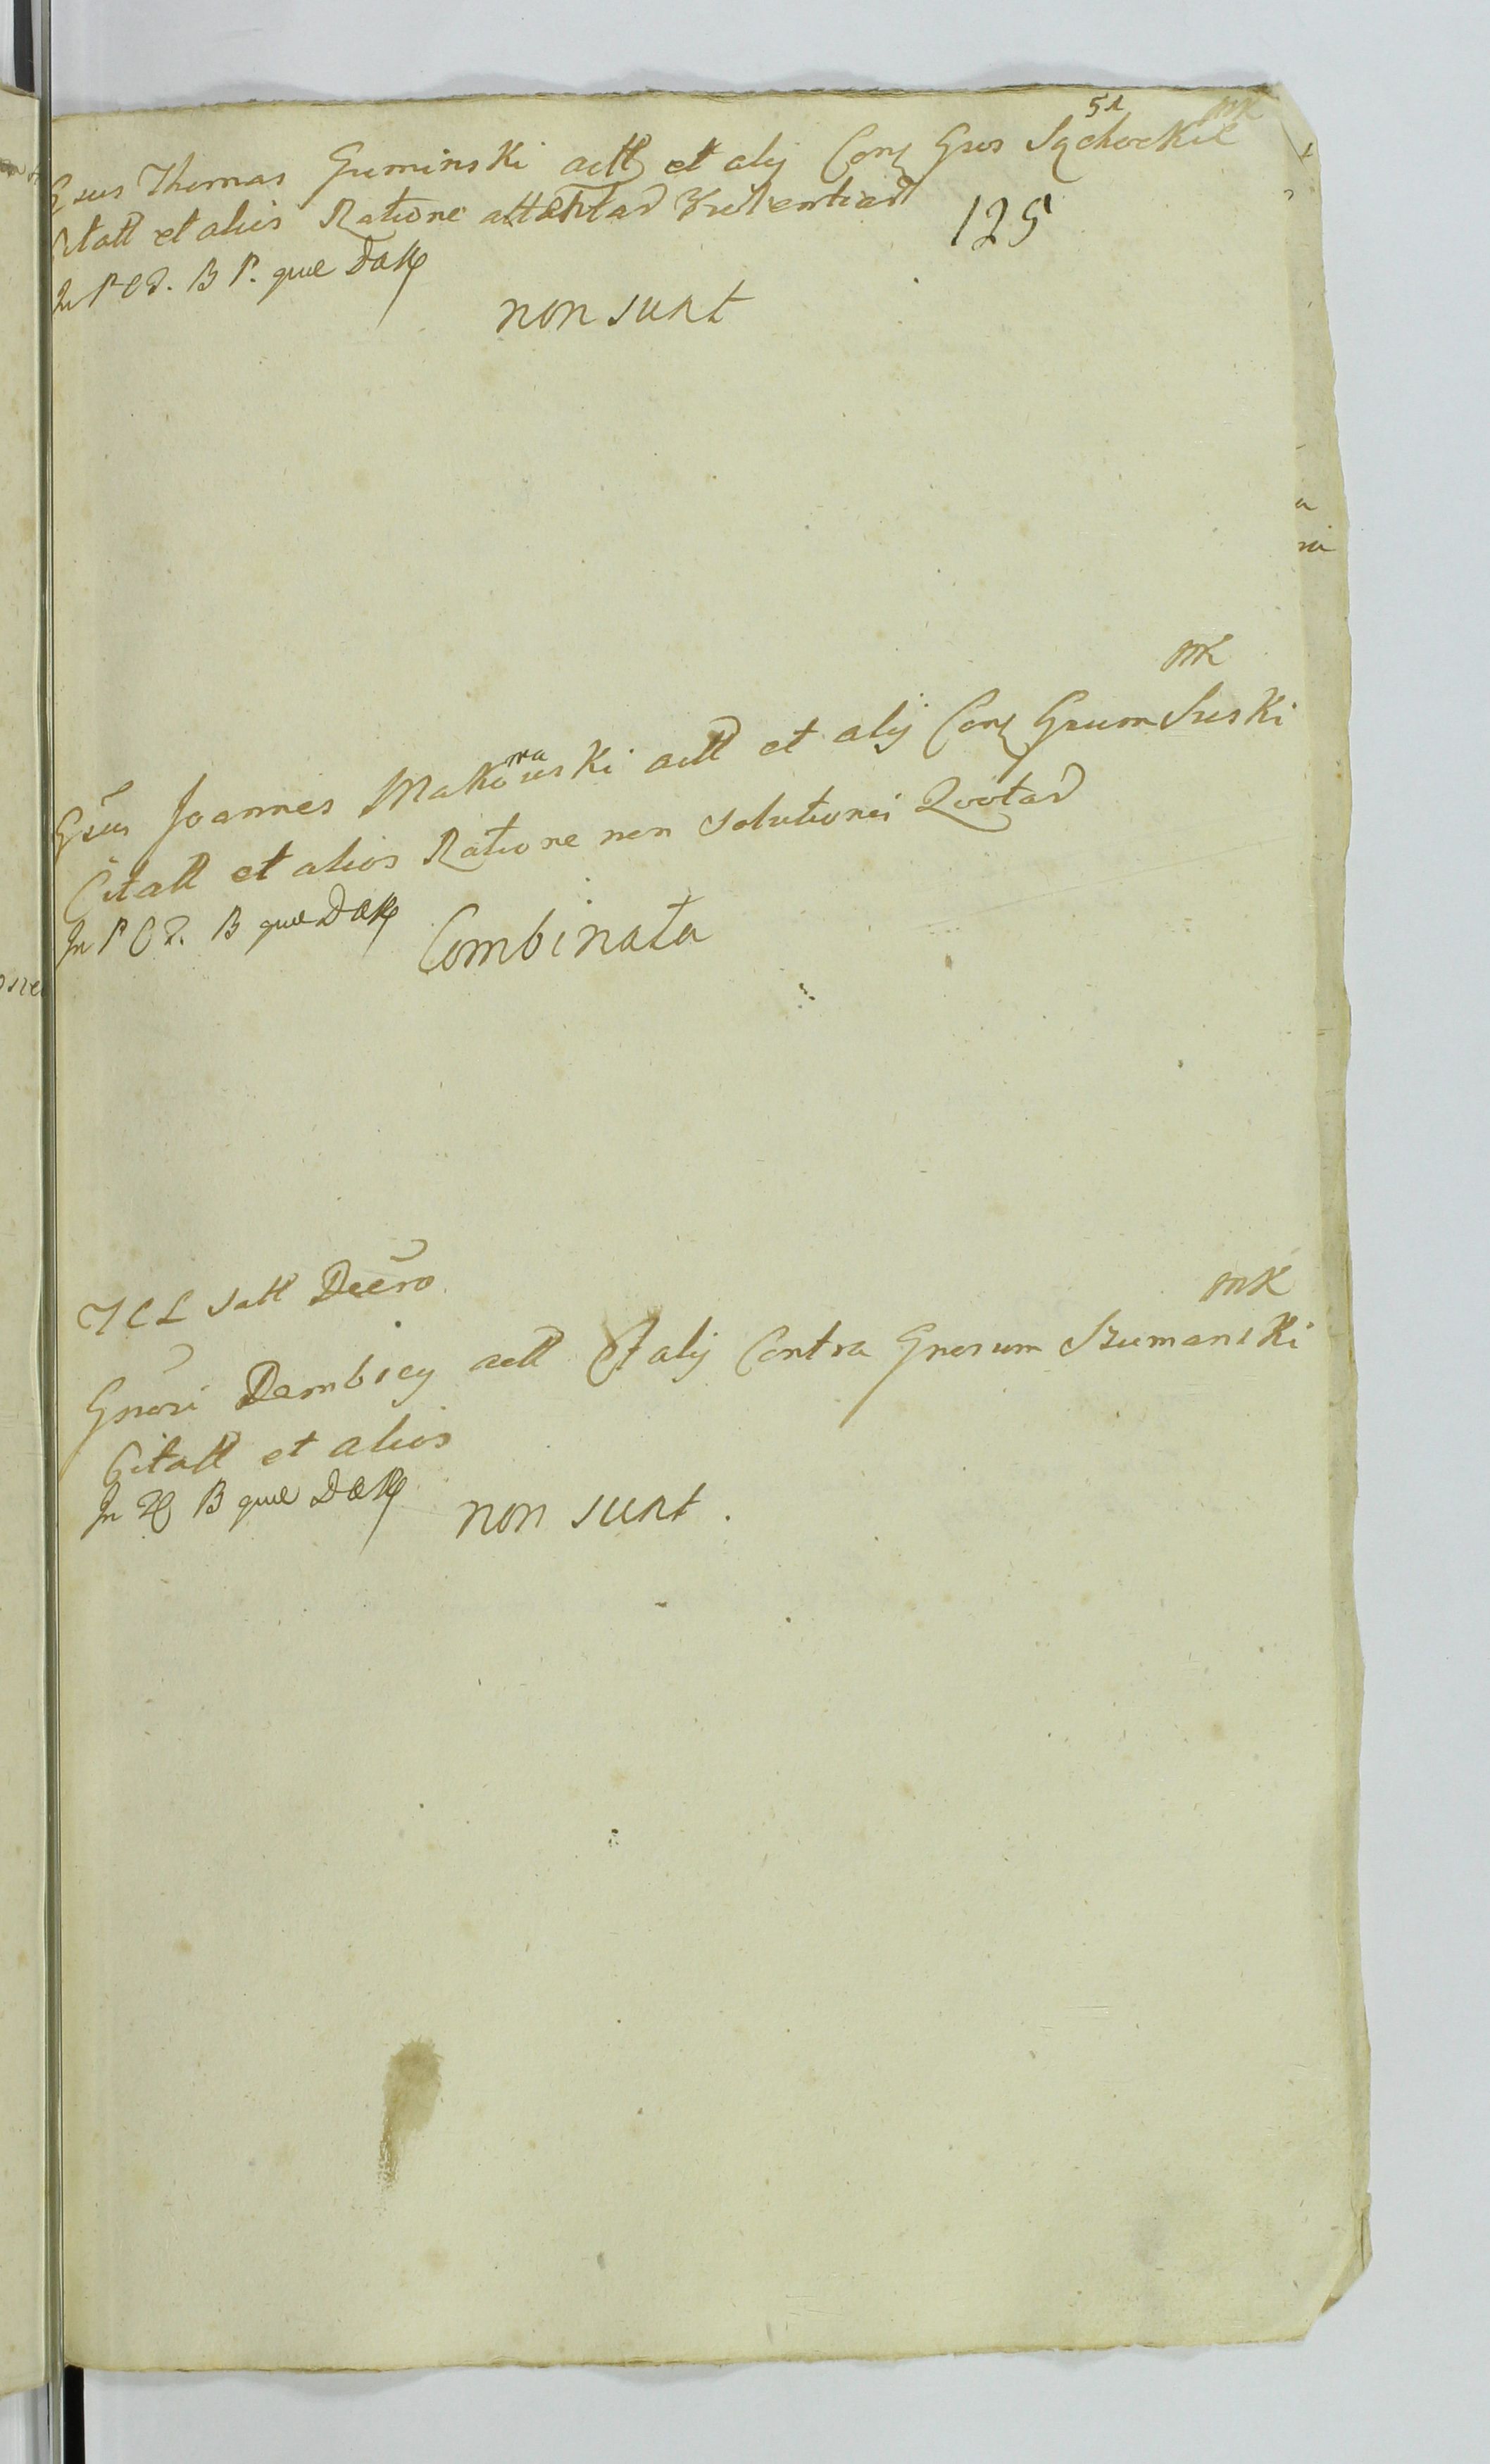 51
mk
Gsus Thomas Guminski actt et alij Con Gsos Sącheckie
Citatt et alios Ratione attentad Violentiad
125
In P C D. B P. quae D
non sunt
mk
Gsus Joannes Makowski actt et alij Con Gsum Suski
ma
Citatt et alios Ratione non Solutionis Quotad
In P C D. B quae D
Combinata
T C L Satt Decro
mk
Gnosi Dembscy actt Et alij Contra Gnosum Szumanski
Citatt et alios
In B quae D
non sunt.